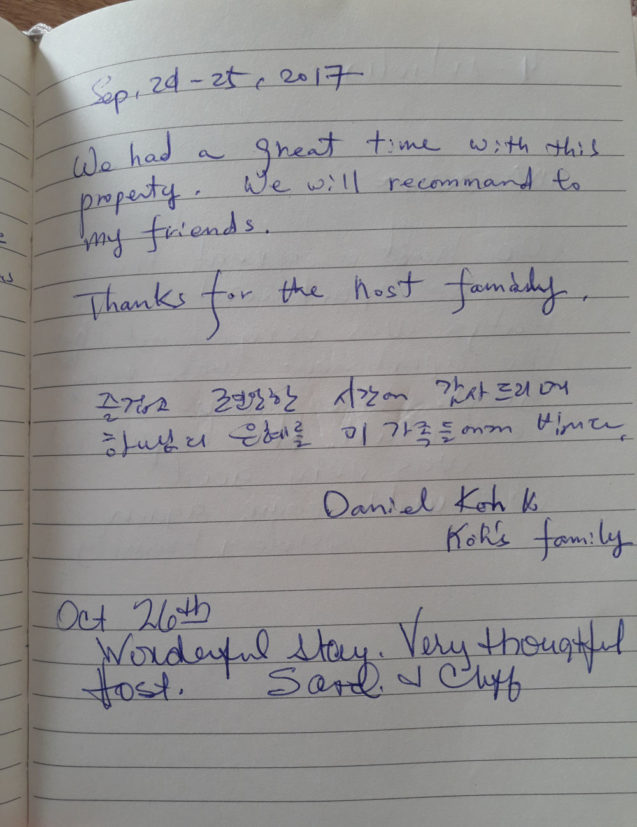 Sep. 24 - 25, 2017
We had a great time with this
property. We will recommand to
my friends.
Thanks for the host family.
즐겁고 편안한 시간에 감사드리며
하나님의 은혜를 이 가족들에게 빕니다.
Daniel Koh &
Koh's family
Oct 26th
Wonderful stay. Very thoughtful
Host. & Cliff